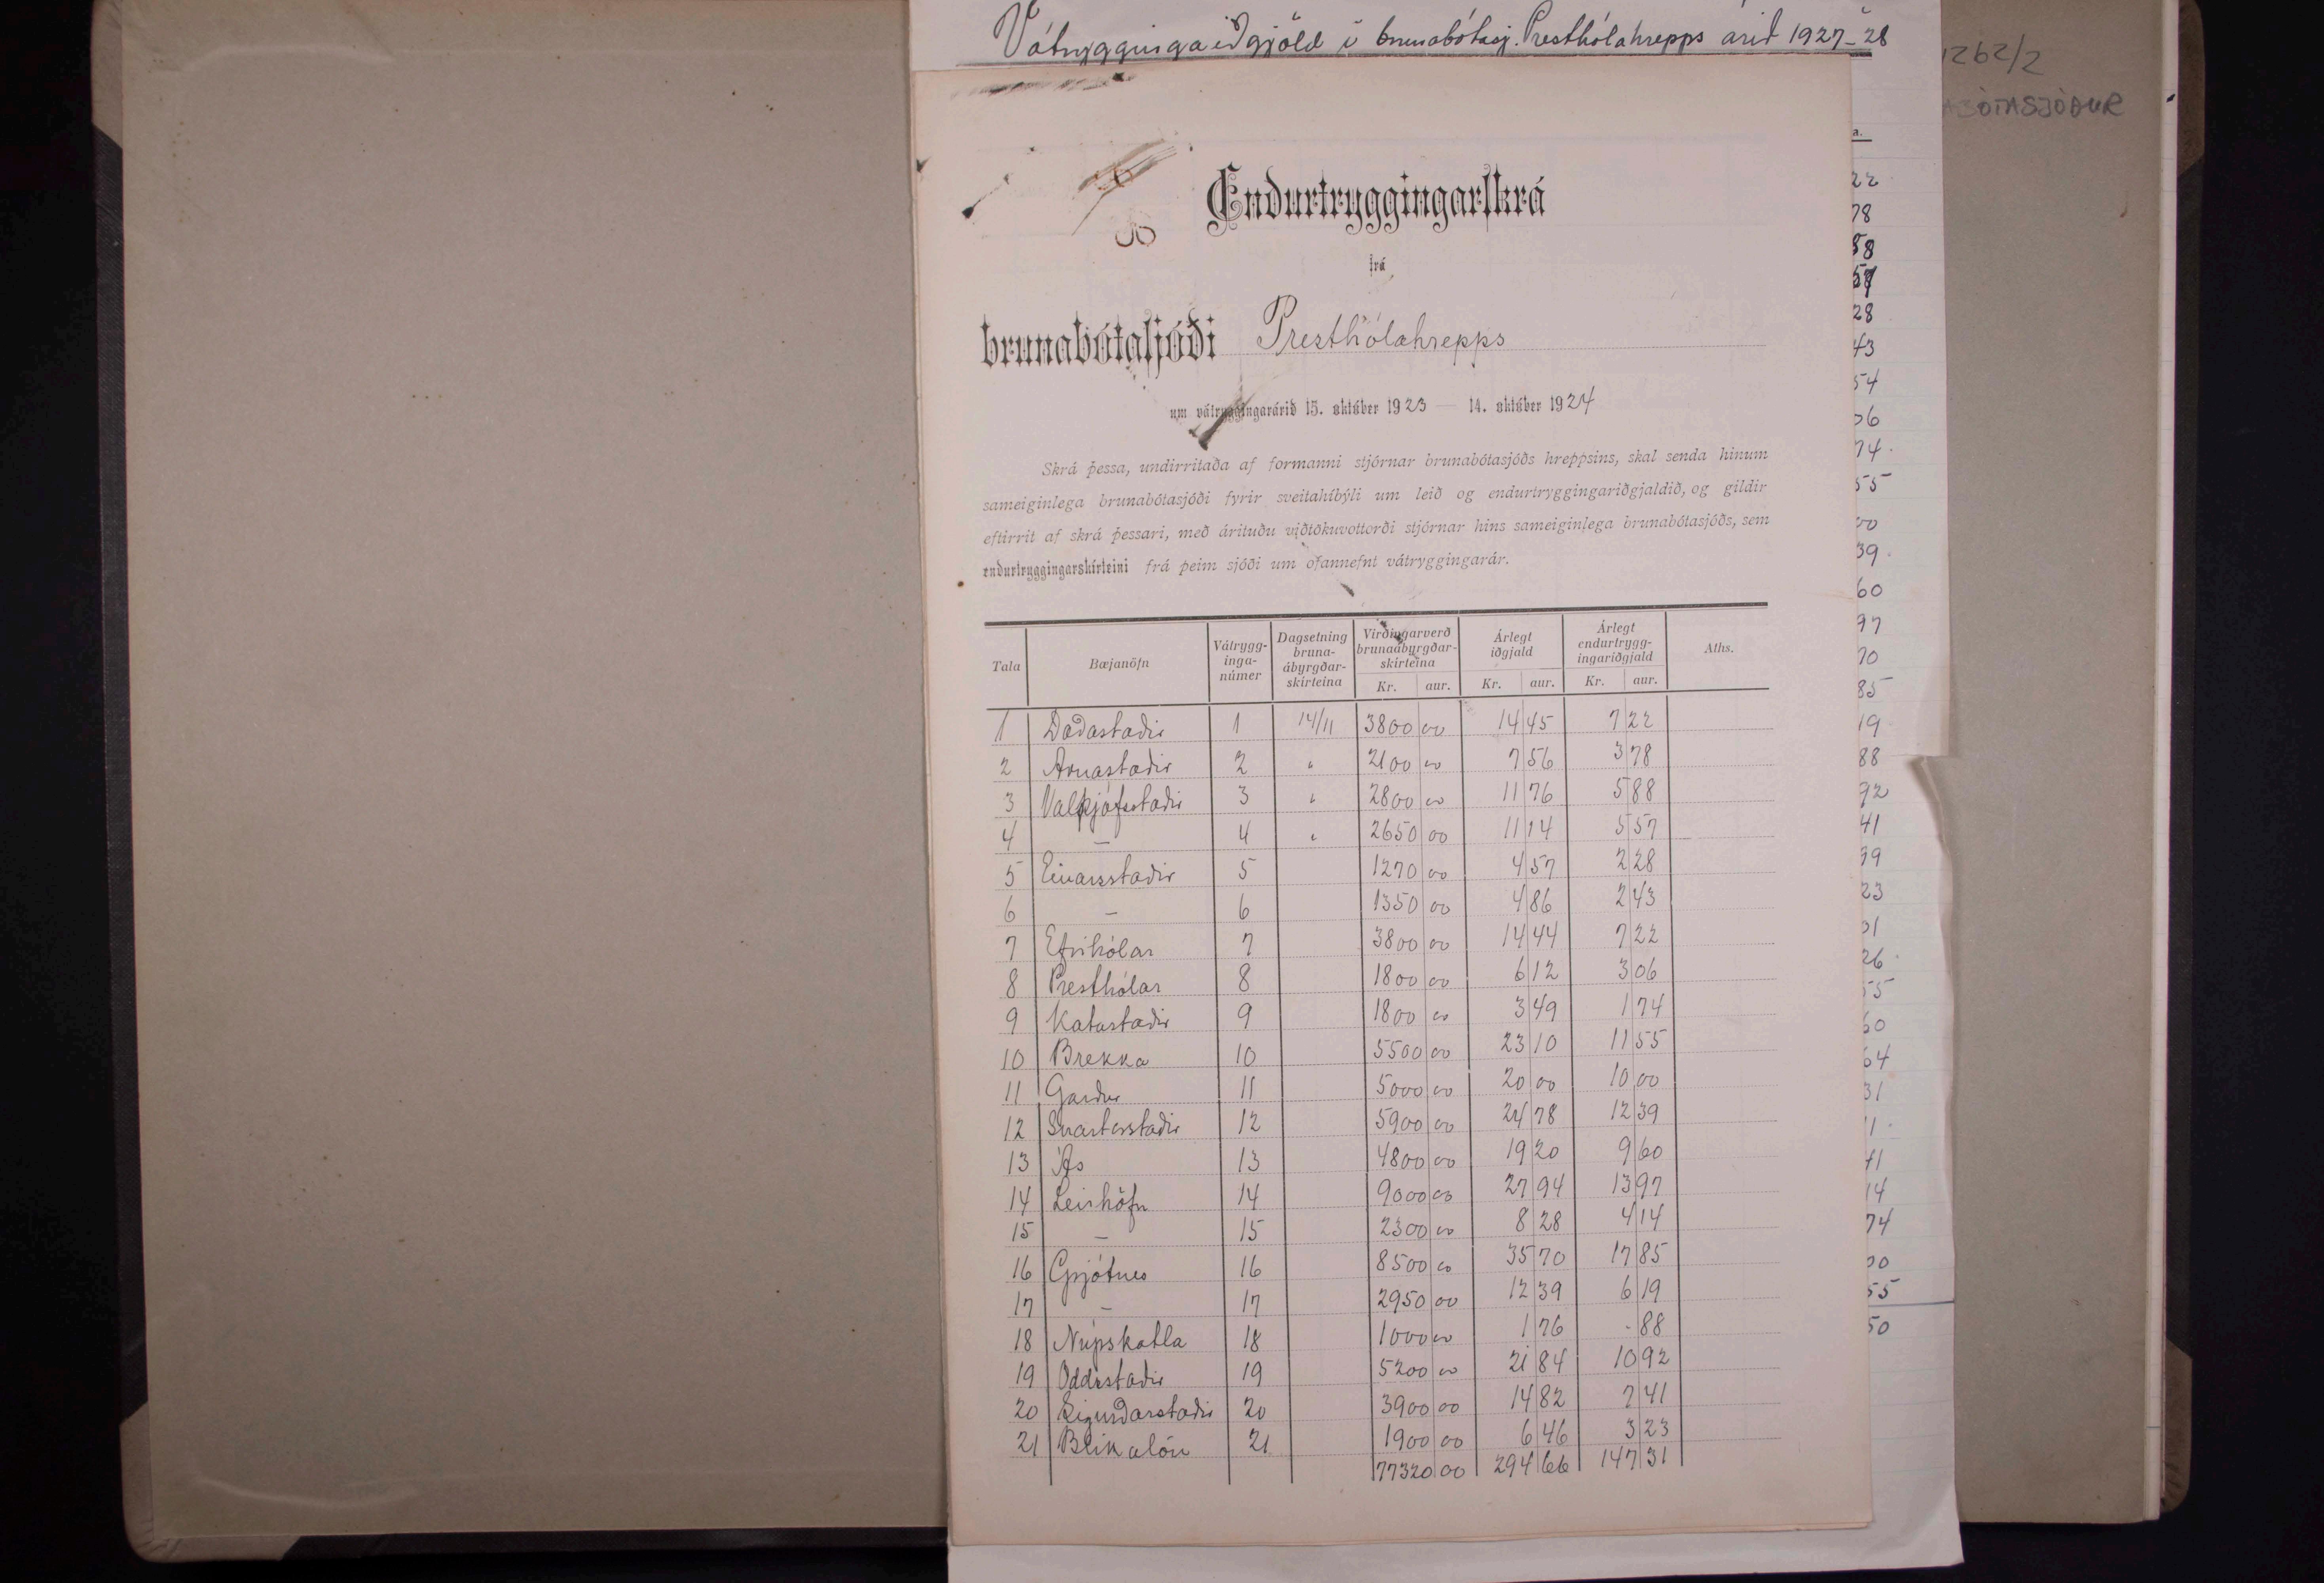 Vátryggingaiðgjöld í brunabótasj. Presthólahrepps árið 1927-28
1262/2
BÓTASJÓÐUR
Endurtryggingarskrá
frá
brunabótasjóði Presthólahrepps
um vátryggingarárið 15. október 1923 — 14. október 1924
Skrá þessa, undirritaða af formanni stjórnar brunabótasjóðs hreppsins, skal senda hinum
sameiginlega brunabótasjóði fyrir sveitahíbýli um leið og endurtryggingariðgjaldið, og gildir
eftirrit af skrá þessari, með árituðu viðtökuvottorði stjórnar hins sameiginlega brunabótasjóðs, sem
endurtryggingarskírteini frá þeim sjóði um ofannefnt vátryggingarár.
Tala Bæjanöfn Vátrygg-inga-númer Dagsetning bruna-ábyrgðar-skírteina Virðingarverð brunaábyrgðar-skírteina Árlegt iðgjald Árlegt endurtrygg-ingariðgjald Aths.
Kr. aur. Kr. aur. Kr. aur.
1 Daðastaðir 1 14/11 3800 00 14 45 7 22
2 Arnastaðir 2 " 2100 00 7 56 3 78
3 Valþjófsstaðir 3 " 2800 00 11 76 5 88
4 — 4 " 2650 00 11 14 5 57
5 Einarsstaðir 5 1270 00 4 57 2 28
6 — 6 1350 00 4 86 2 43
7 Efrihólar 7 3800 00 14 44 7 22
8 Presthólar 8 1800 00 6 12 3 06
9 Katastaðir 9 1800 00 3 49 1 74
10 Brekka 10 5500 00 23 10 11 55
11 Garður 11 5000 00 20 00 10 00
12 Snartarstaðir 12 5900 00 24 78 12 39
13 Ás 13 4800 00 19 20 9 60
14 Leirhöfn 14 9000 00 27 94 13 97
15 — 15 2300 00 8 28 4 14
16 Grjótnes 16 8500 00 35 70 17 85
17 — 17 2950 00 12 39 6 19
18 Núpskatla 18 1000 00 1 76 - 88
19 Oddsstaðir 19 5200 00 21 84 10 92
20 Sigurðarstaðir 20 3900 00 14 82 7 41
21 Blikalón 21 1900 00 6 46 3 23
77320 00 294 66 147 31